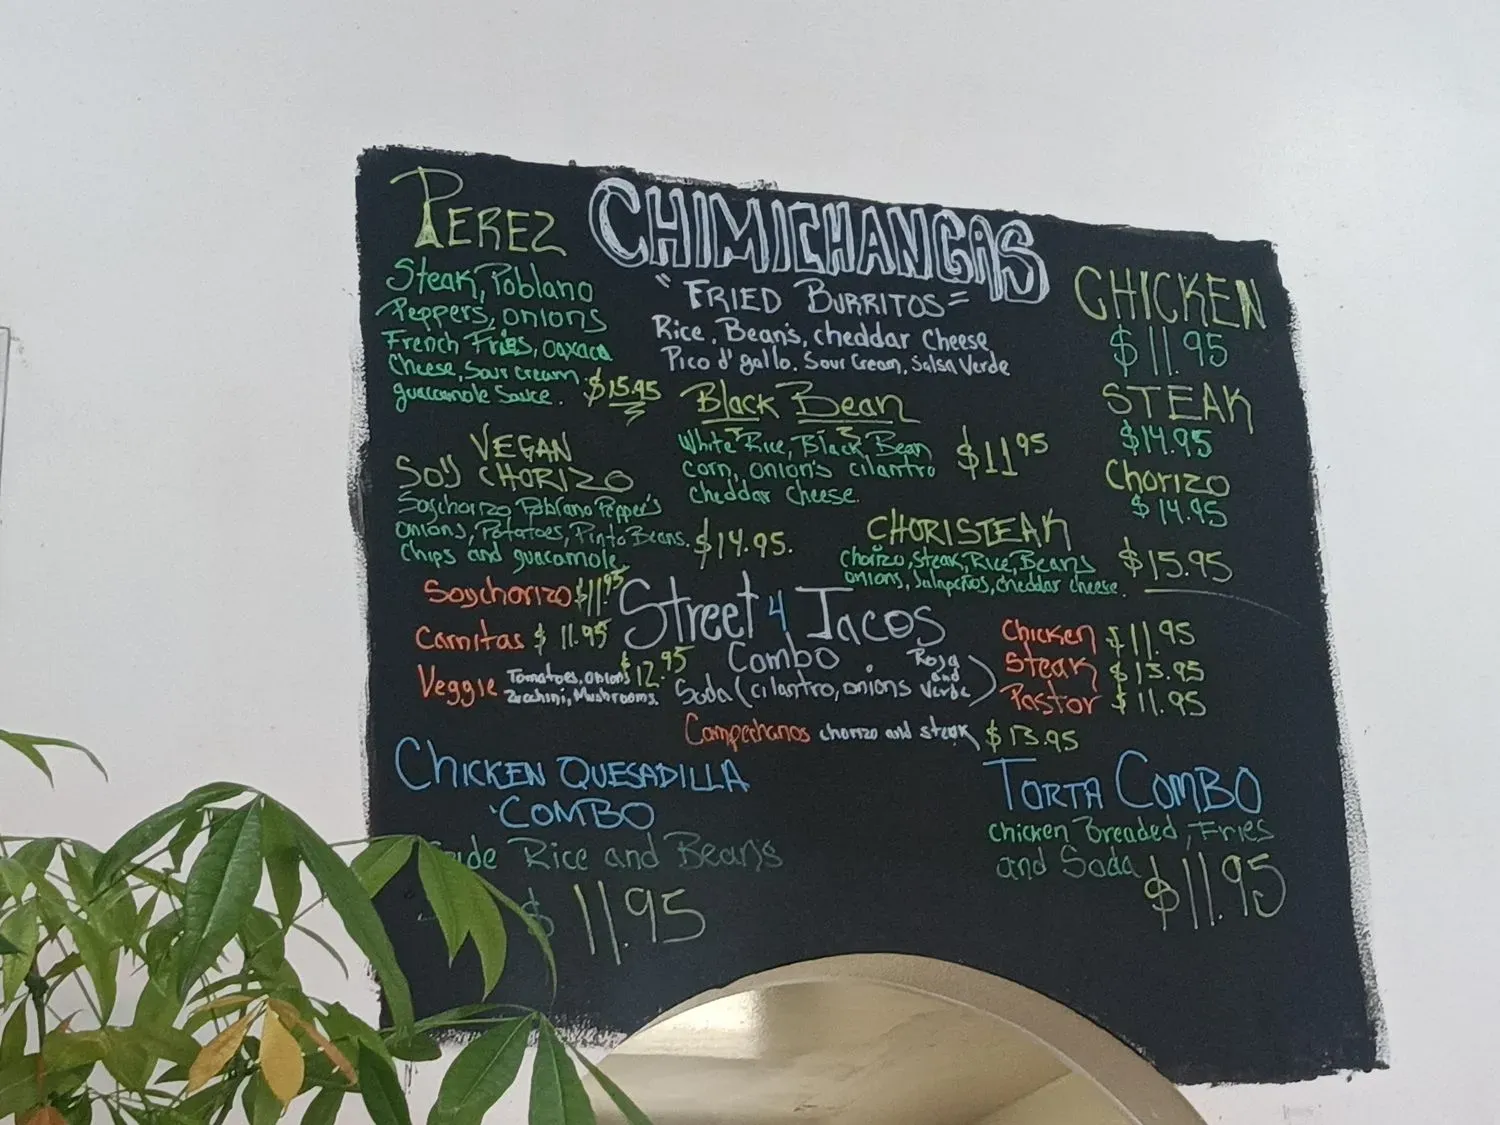 PEREZ
Steak, Poblano
Peppers, onions
French Fries, oaxaca
Cheese, Sour cream
guacamole Sauce. $15.95
CHIMICHANGAS
"FRIED BURRITOS"
Rice, Bean's, cheddar Cheese
Pico d' gallo. Sour Cream, Salsa Verde
CHICKEN
$11.95
STEAK
$14.95
Chorizo
$14.95
Black Bean
White Rice, Black Bean
corn, onion's cilantro
cheddar cheese.
$11.95
VEGAN
SOY CHORIZO
Soychorizo Poblano Pepper's
onions, Potatoes, Pinto Beans.
Chips and guacamole
$14.95.
CHORISTEAK
chorizo, Steak, Rice, Beans
onions, Jalapeños, cheddar cheese.
$15.95
Street 4 Tacos
Combo
Soda (cilantro, onions Roja and Verde)
Soychorizo $11.95
Carnitas $11.95
Veggie Tomatoes, onions
Zucchini, Mushrooms.
$12.95
Chicken $11.95
Steak $13.95
Pastor $11.95
Campechanos chorizo and steak $13.95
CHICKEN QUESADILLA
COMBO
Rice and Bean's
$11.95
TORTA COMBO
chicken Breaded, Fries
and Soda
$11.95